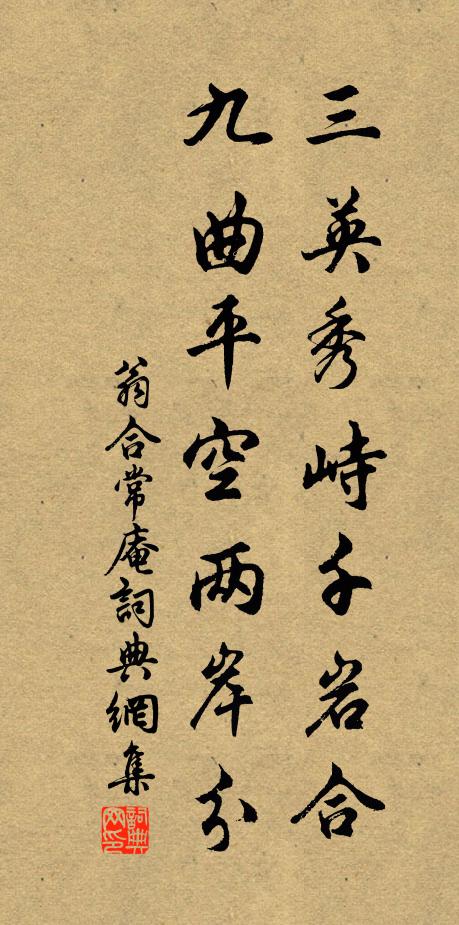 三英秀峙千岩合
九曲平空两岸分
翁合常庵詞典網集
詞典网印